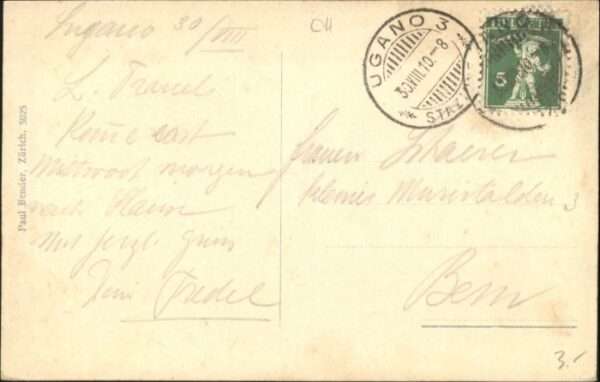 Lugano 30/VIII
CH
L.
Komme erst
Mittwoch morgen
nach Hause
Mit herzl. Gruss
Dein Friedel
Frauen Schaerer
kleines Muristalden 3
Bern
UGANO 3
30.VIII.10.-8
5
Paul Bender, Zürich, 3025
3.-